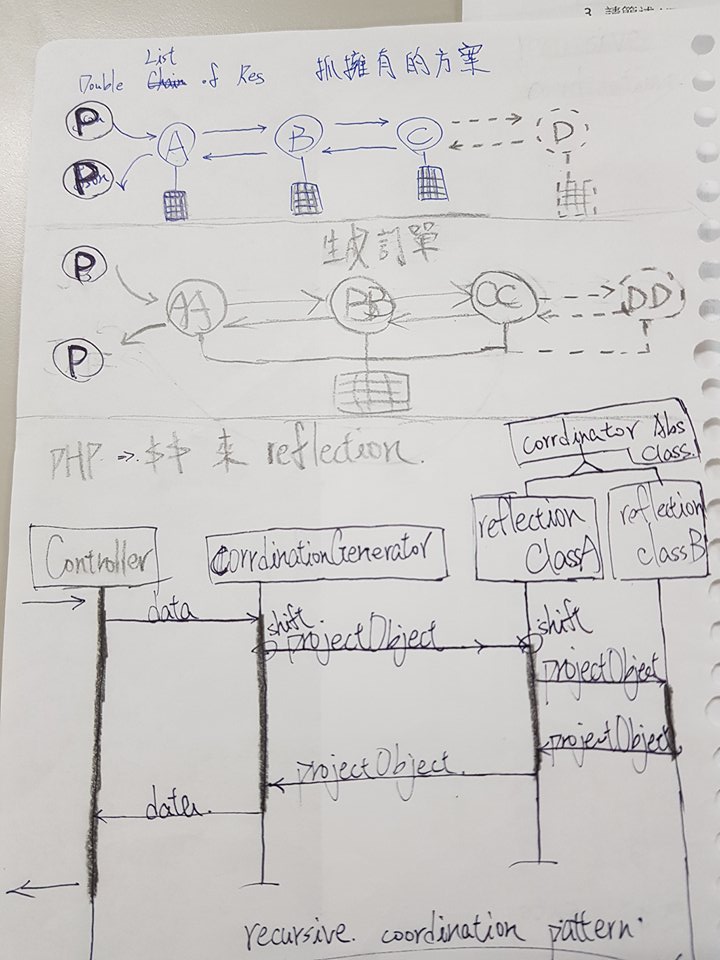 3. 請簡述
List
Double Chain of Res 抓擁有的方案
P
A B C D
P
生成訂單
P
AA BB CC DD
P
PHP → 車 来 reflection.
corrdinator Abs
Class.
Controller CorrdinationGenerator reflection ClassA reflection classB
data
shift
projectObject
shift
projectObject
projectObject
projectObject.
data.
recursive. coordination pattern.